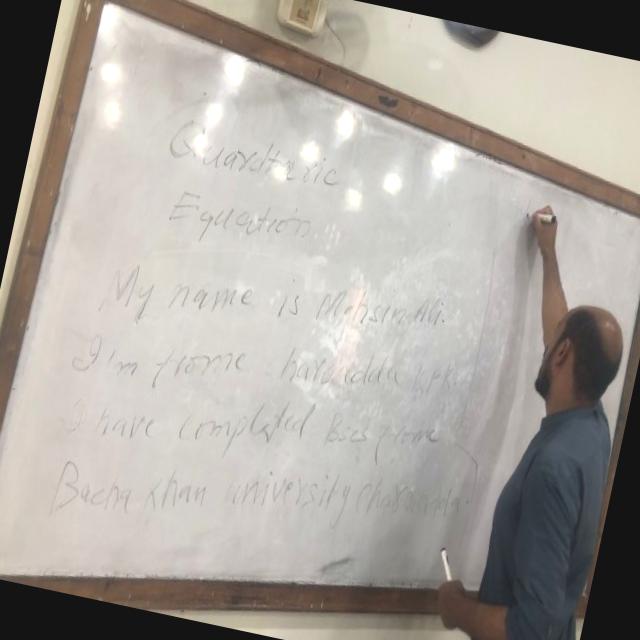 Quardratic
Equation
My name is Mohsin Ali.
I'm frome charsadda kpk
I have completed Bscs frome
Bacha Khan university charsadda.